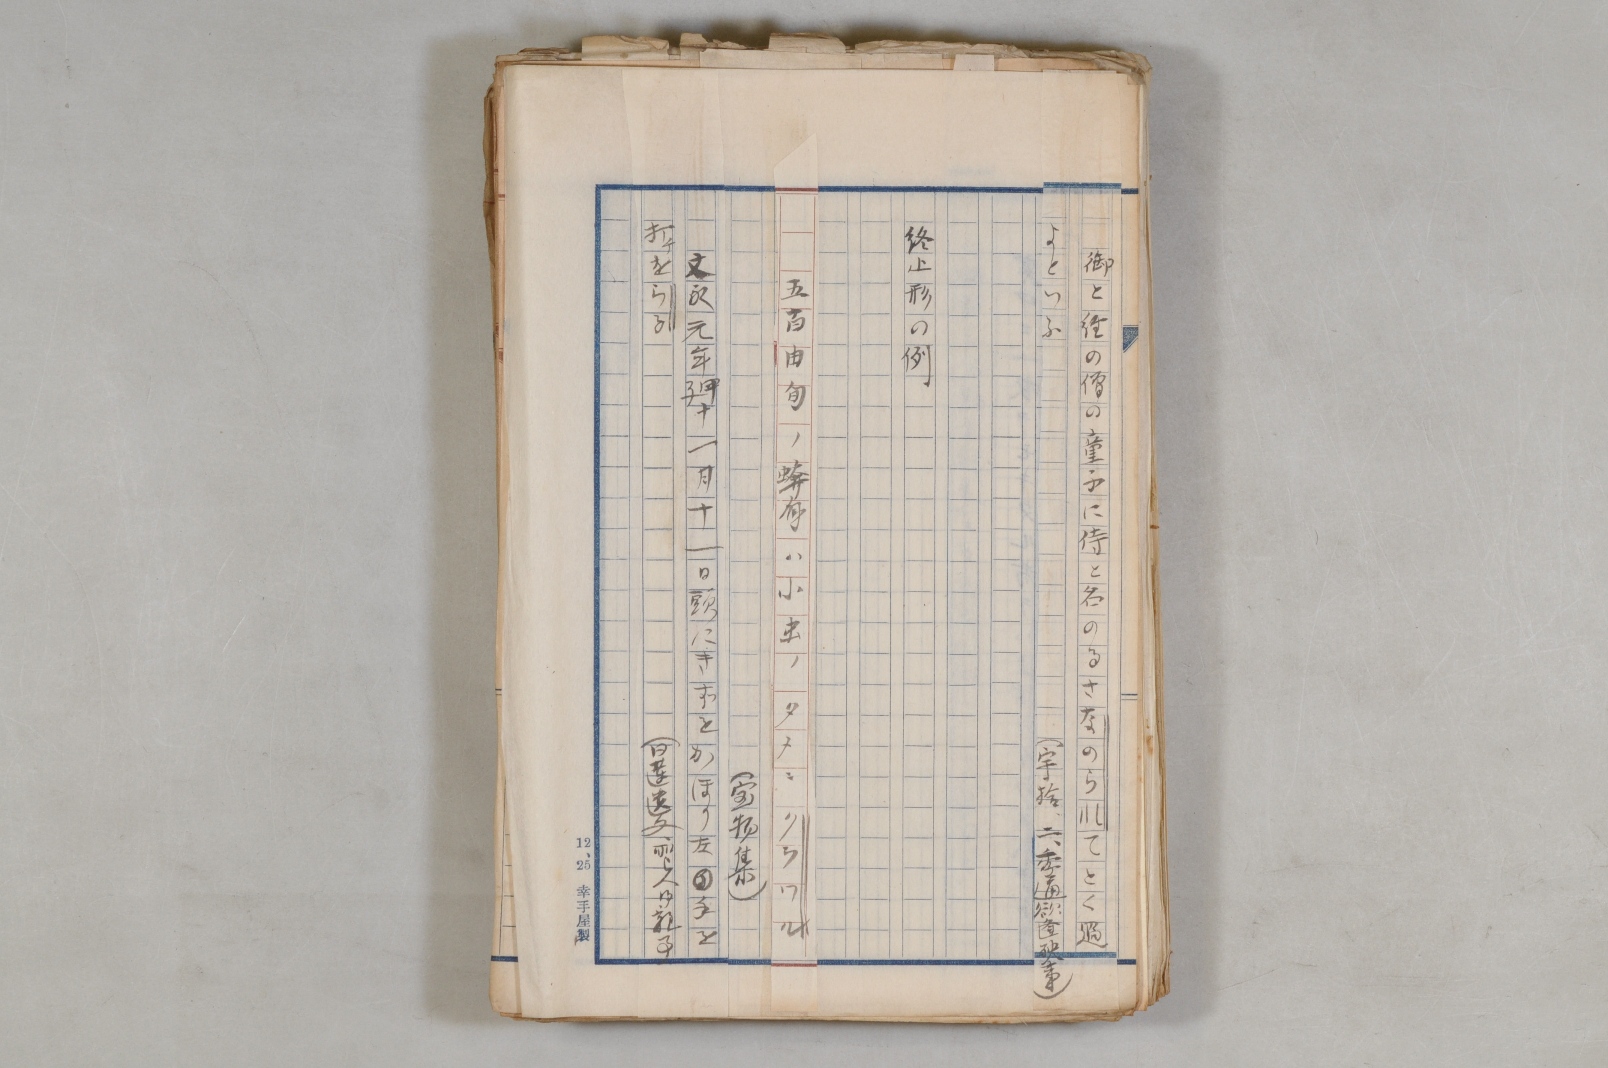 御と経の僧の童子に侍と名のるさなのられてとく過
よといふ
（宇拾、二、季通欲逢殃事）
終止形の例
五百由旬ノ蟒身ハ小虫ノタメニクラワル
（宝物集）
文永元年甲子十一月十一日頭にきずをかほり左の手を
打をらる
（日蓮遺文、聖人御難事）
12、25 幸手屋製